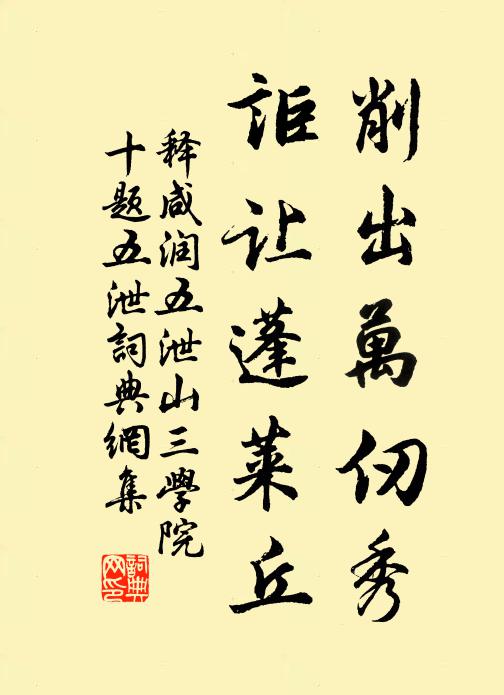 削出萬仞秀
詎让蓬莱丘
释咸润五泄山三學院
十题五泄詞典網集
詞典网印